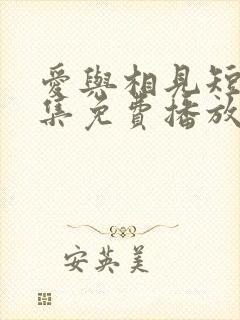 愛與相見短
集免費播放
安英美